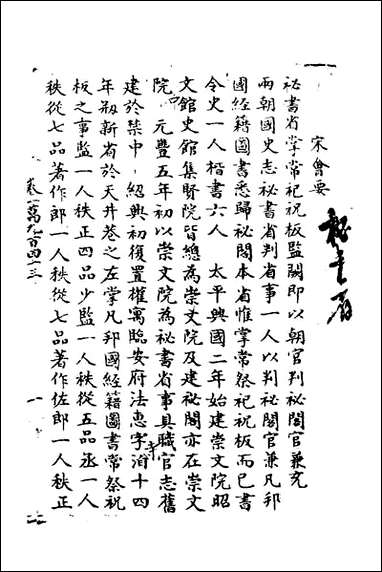 宋會要
秘書省
祕書省掌常祀祝板監闕即以朝官判祕閣官兼充
兩朝國史志祕書省判省事一人以判祕閣官兼凡邦
國經籍圖書悉歸祕閣本省惟掌常祭祀祝板而已書
令史一人楷書六人　太平興國二年始建崇文院昭
文館史館集賢院皆總為崇文院及建祕閣亦在崇文
院　元豐五年初以崇文院為祕書省事具職官志舊
建於禁中　紹興初復置權寓臨安府法惠寺字洎十四
年剏新省於天井巷之左掌凡邦國經籍圖書常祭祝
板之事監一人秩正四品少監一人秩從五品丞一人
秩從七品著作郎一人秩從七品著作佐郎一人秩正
卷一萬九百四十三
一